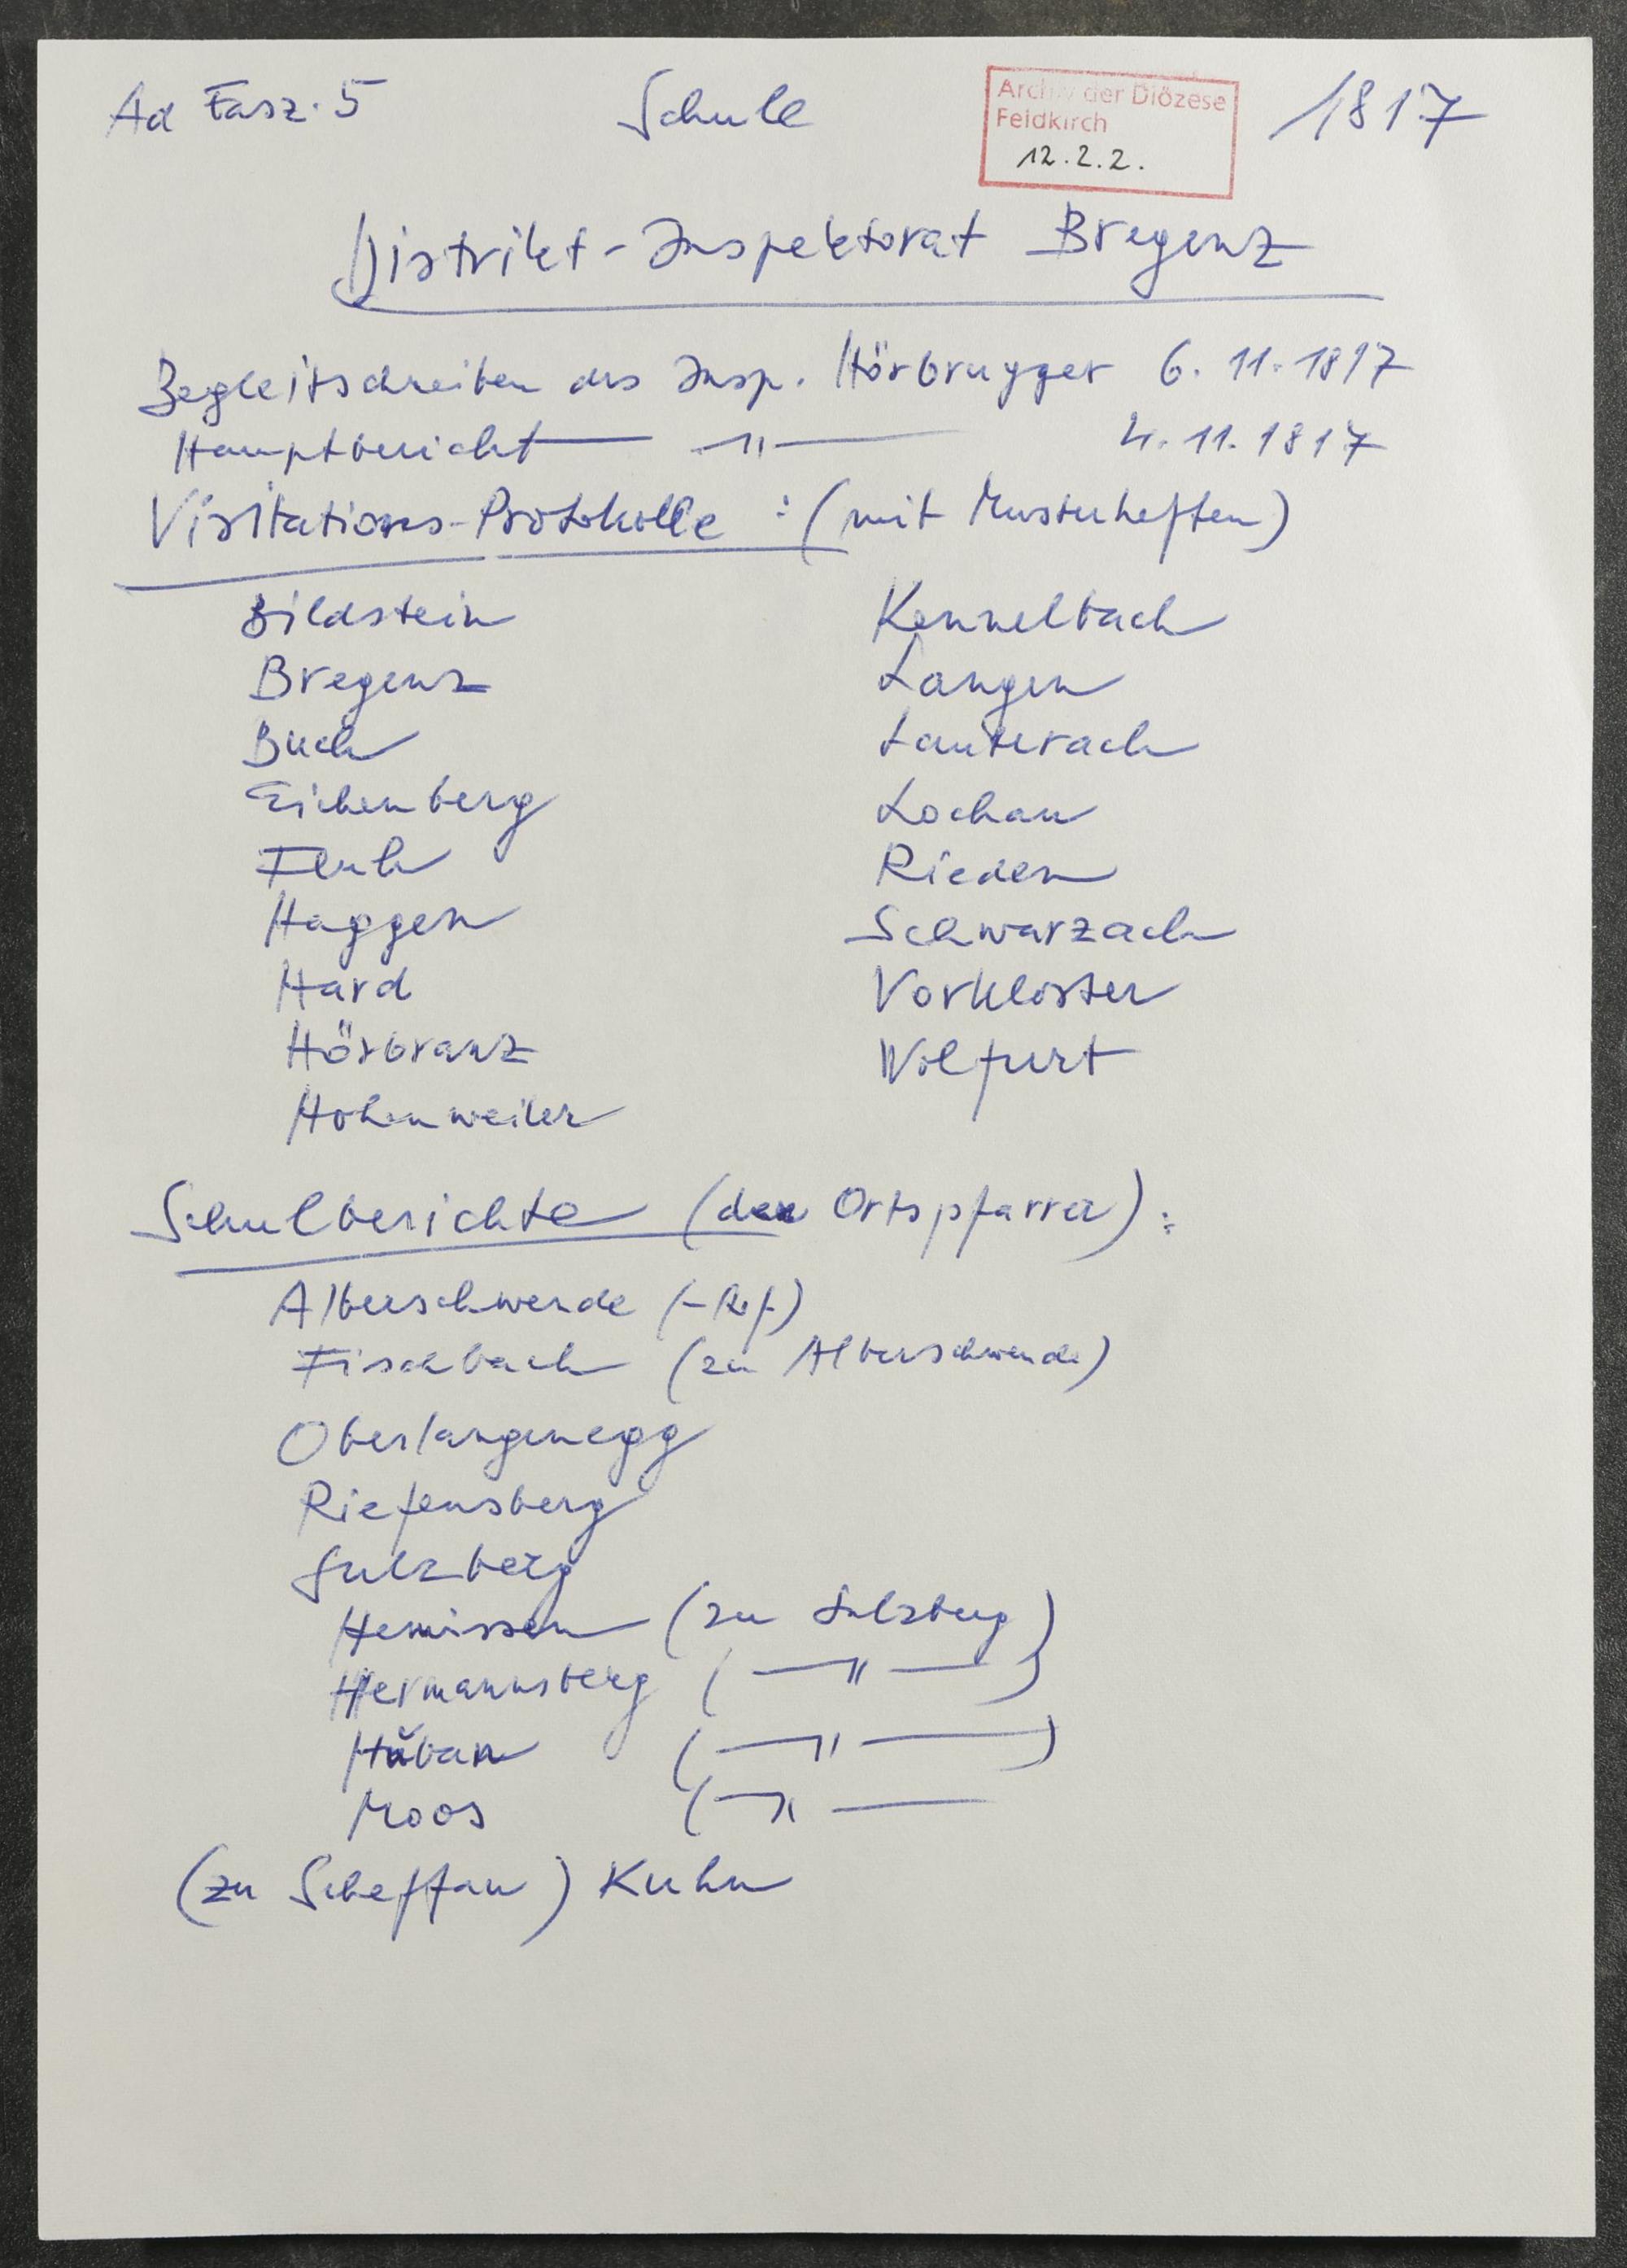 Ad Fasz. 5 Schule 1817
Archiv der Diözese
Feldkirch
12.2.2.
Distrikt-Inspektorat Bregenz
Begleitschreiben des Insp. Hörbrugger 6. 11. 1817
Hauptbericht — " — 4. 11. 1817
Visitations-Protokolle : (mit Musterheften)
Bildstein
Bregenz
Buch
Eichenberg
Fluh
Haggen
Hard
Hörbranz
Hohenweiler
Kennelbach
Langen
Lauterach
Lochau
Rieden
Schwarzach
Vorkloster
Wolfurt
Schulberichte (der Ortspfarrer) :
Alberschwende
Fischbach (zu Alberschwende)
Oberlangenegg
Riefensberg
Sulzberg
(zu Sulzberg)
Hermannsberg ( — " — )
( — " — )
Moos ( — " —
(zu Scheffau) Kuhn